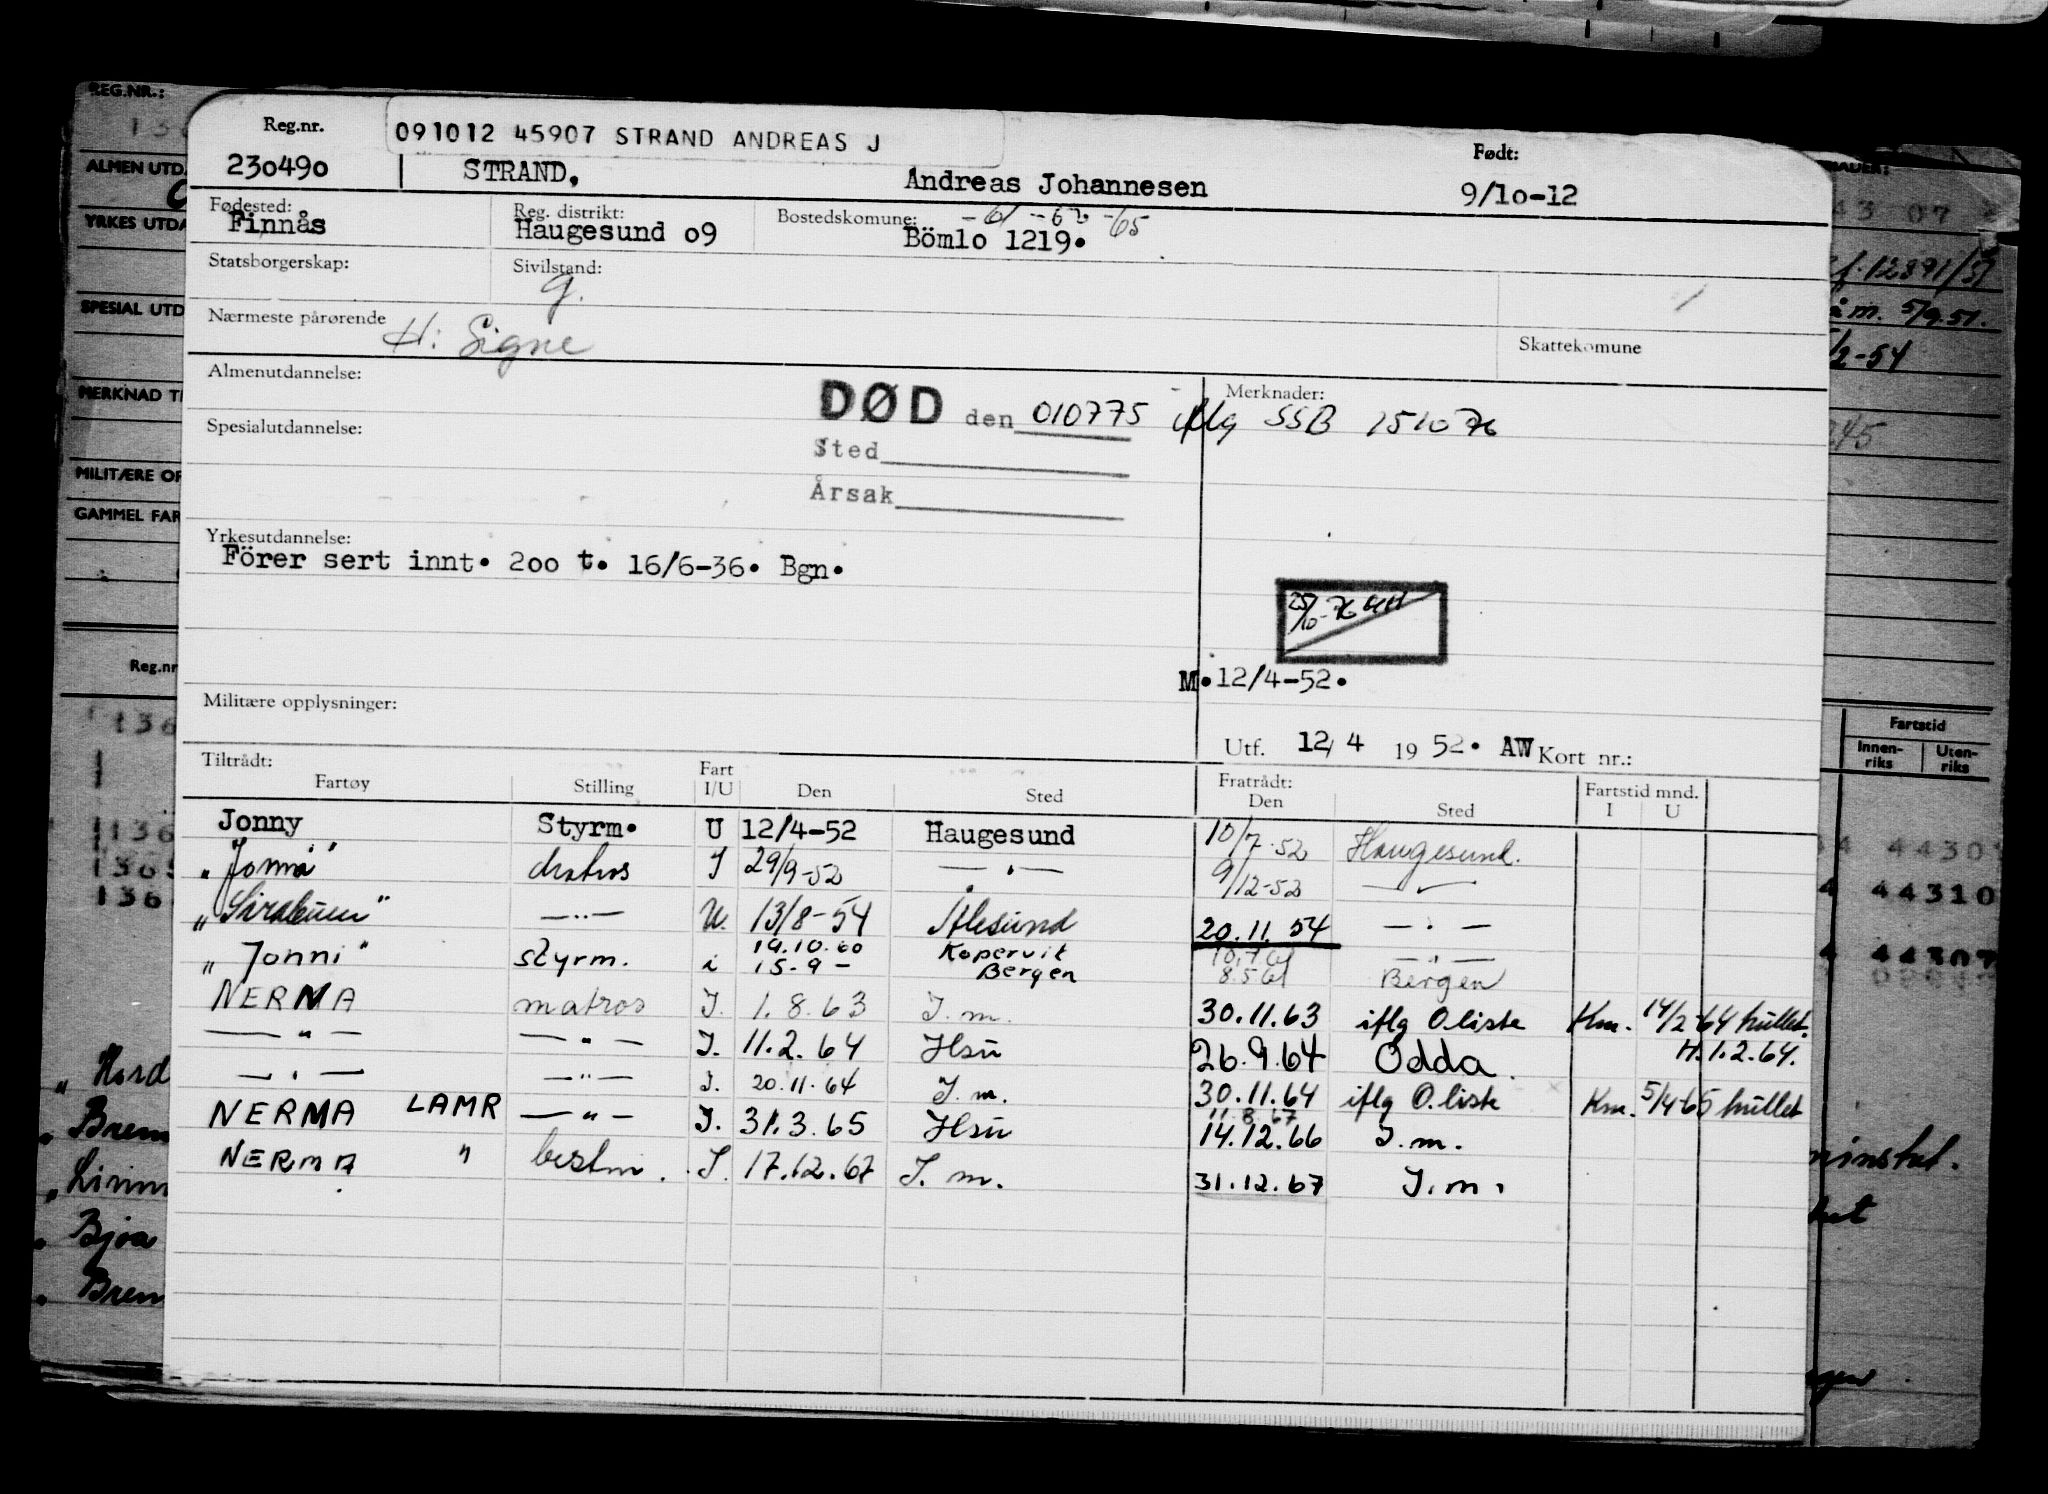 REG.NR.:
ALMEN UTD.
YRKES UTDA
SPESIAL UTD
MERKNAD T
MILITÆRE OP
GAMMEL FAR
Reg.nr
136
Hord
Brem
Bjoa
Brem
Reg.nr. 091012 45907 STRAND ANDREAS J Født:
230490 STRAND, Andreas Johannesen 9/10-12
Fødested: Reg. distrikt: Bostedskomune: -61 -62 -65
Finnås Haugesund 09 Bömlo 1219.
Statsborgerskap: Sivilstand: g.
Nærmeste pårørende H: Signe Skattekomune
Almenutdannelse: Merknader:
DØD den 010775 iflg SSB 151076
Spesialutdannelse: Sted
Årsak
Yrkesutdannelse:
Förer sert innt. 200 t. 16/6-36. Bgn.
25/10-76
M. 12/4-52.
Militære opplysninger:
Utf. 12/4 1952. AW Kort nr.:
Tiltrådt: Fratrådt: Fartstid mnd.
Fartøy Stilling Fart I/U Den Sted Den Sted I U
Jonny Styrm. U 12/4-52 Haugesund 10/7-52 Haugesund.
" Jonni" matros I 29/9-52 — " — 9/12-52 — " —
" " — " — U. 13/8-54 Ålesund 20.11.54 — " —
" Jonni" styrm. i 19.10.60 Kopervik 10.7.61 — " —
15-9 – Bergen 8.5.61 Bergen
NERMA matros I. 1.8.63 I.m. 30.11.63 iflg O.liste Km. 14/2-64 hullet.
— " — — " — I. 11.2.64 Hsu 26.9.64 Odda. H.1.2.64.
— " — — " — I. 20.11.64 I.m. 30.11.64 iflg O.liste Km. 5/4-65 hullet
11.8.67
NERMA LAMR — " — I. 31.3.65 Hsu 14.12.66 I.m.
NERMA " bestm. I. 17.12.67 I.m. 31.12.67 I.m.
12891/51
m. 5/9.51.
2-54
245
Fartstid
Innen-riks Uten-riks
44310
44307